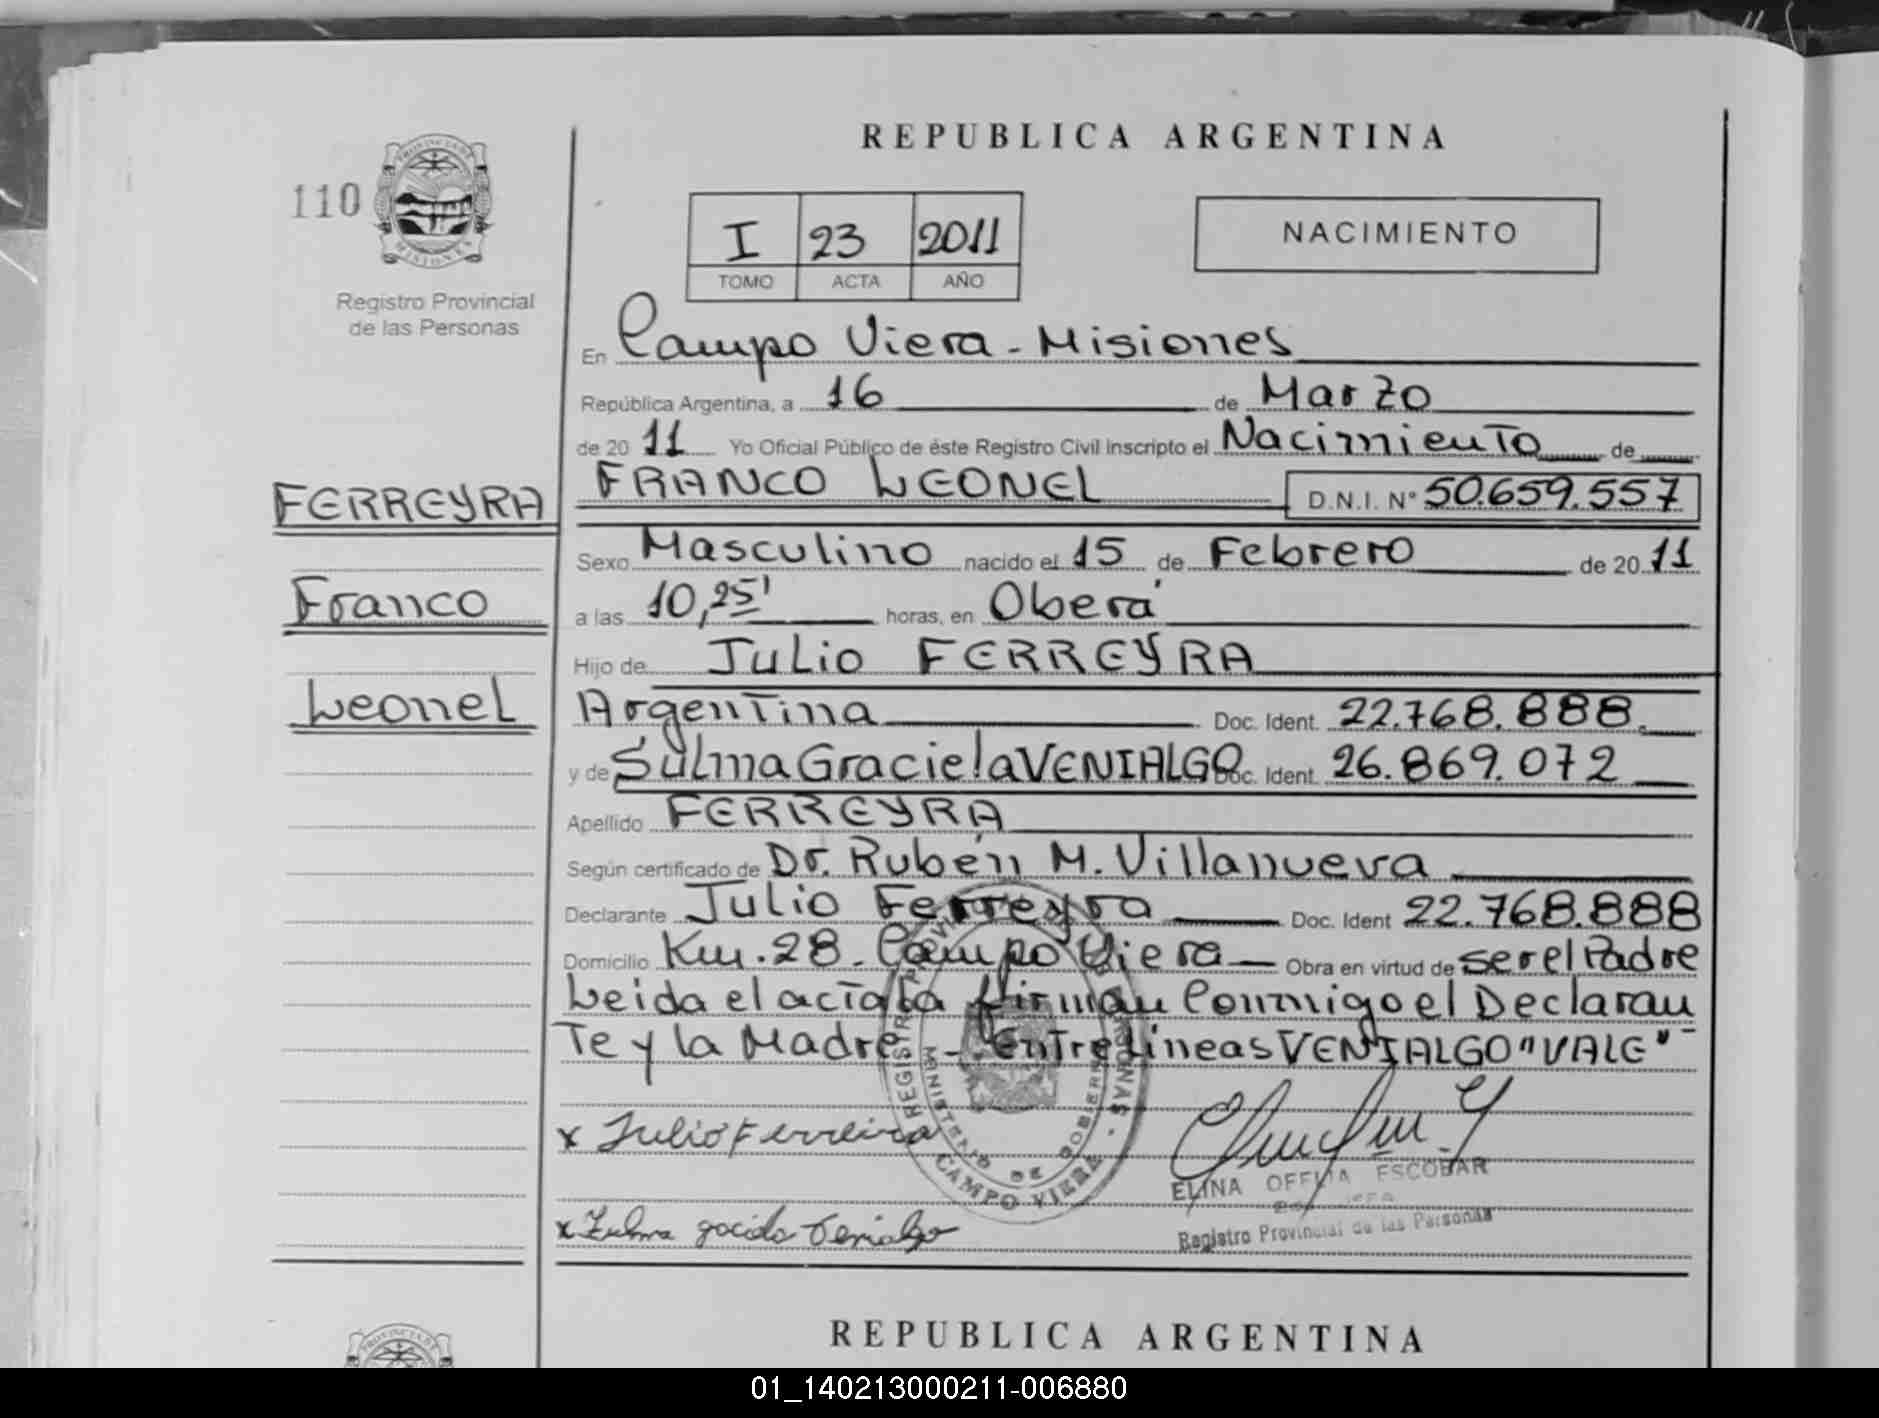 REPUBLICA ARGENTINA
110
PROVINCIA DE
MISIONES
Registro Provincial
de las Personas
I 23 2011
TOMO ACTA AÑO
NACIMIENTO
En Campo Viera - Misiones
República Argentina, a 16 de Marzo
de 20 11 Yo Oficial Público de éste Registro Civil Inscripto el Nacimiento de
FERREYRA
FRANCO LEONEL D.N.I. N° 50.659.557
Sexo Masculino nacido el 15 de Febrero de 20 11
Franco
a las 10,25' horas, en Oberá
Hijo de Julio FERREYRA
Leonel
Argentina Doc. Ident. 22.768.888.
y de Sulma Graciela VENIALGO Doc. Ident. 26.869.072
Apellido FERREYRA
Según certificado de Dr. Rubén M. Villanueva
Declarante Julio Ferreyra Doc. Ident 22.768.888
Domicilio Km. 28 - Campo Viera Obra en virtud de ser el Padre
Leida el acta la firman Conmigo el Declaran
Te y la Madre - EntreLineas VENIALGO "VALE"
x Julio Ferreira
REGISTRO PROVINCIAL DE LAS PERSONAS
MINISTERIO DE GOBIERNO
CAMPO VIERA
ELINA OFELIA ESCOBAR
Registro Provincial de las Personas
x Zulma gacida Venialgo
REPUBLICA ARGENTINA
PROVINCIA DE
01_140213000211-006880